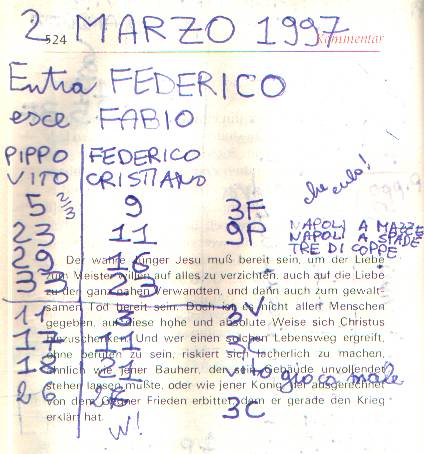 2 MARZO 1997
524 Kommentar
Entra FEDERICO
esce FABIO
PIPPO FEDERICO
VITO CRISTIANO
che culo!
5 2/3 9 3F
23 11 9P NAPOLI A MAZZE
NAPOLI A SPADE
29 TRE DI COPPE
Der wahre Jünger Jesu muß bereit sein, um der Liebe
zum Meister willen auf alles zu verzichten, auch auf die Liebe
23
zu den ganz nahen Verwandten, und dann auch zum gewalt-
samen Tod bereit sein. Doch ist es nicht allen Menschen
11
gegeben, auf diese hohe und absolute Weise sich Christus
17 11 3C
hinzuschenken. Und wer einen solchen Lebensweg ergreift,
ohne berufen zu sein, riskiert sich lächerlich zu machen,
18 21 vito gioca male
ähnlich wie jener Bauherr, der sein Gebäude unvollendet
stehen lassen mußte, oder wie jener König, der ausgerechnet
26
von dem Gegner Frieden erbittet, dem er gerade den Krieg
3C
erklärt hat.
W!